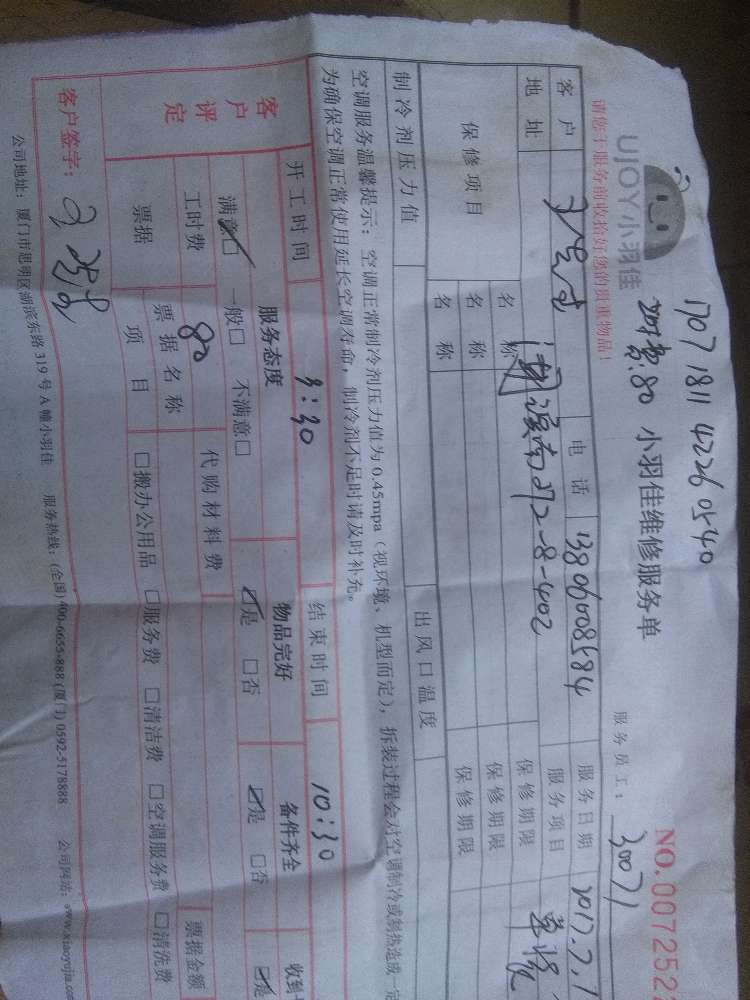 1707 1811 4226 0540
UJOY小羽佳
:80 小羽佳维修服务单
服务员工: 30071
NO.007252
请您于服务前收拾好您的贵重物品!
客户 电话 13806008584 服务日期 2017.7.1
地址 湖滨南272-8-402 服务项目
保修项目 名称 保修期限
名称 保修期限
名称 保修期限
制冷剂压力值 出风口温度
空调服务温馨提示:空调正常制冷剂压力值为 0.45mpa(视环境、机型而定),拆装过程会对空调制冷或制热造成一定
为确保空调正常使用延长空调寿命,制冷剂不足时请及时补充。
开工时间 结束时间 10:30
客户评定 服务态度 物品完好 备件齐全 收到
满意☑ 一般□ 不满意□ ☑是 □否 ☑是 □否 ☑是
工时费 80 代购材料费
票据 票据名称 票据金额
项目 □搬办公用品 □服务费 □清洁费 □空调服务费 □清洗费
客户签字:
公司地址:厦门市思明区湖滨东路 319 号 A 幢小羽佳 服务热线:(全国)400-6655-888 (厦门) 0592-5178888 公司网站:www.xiaoyujia.com